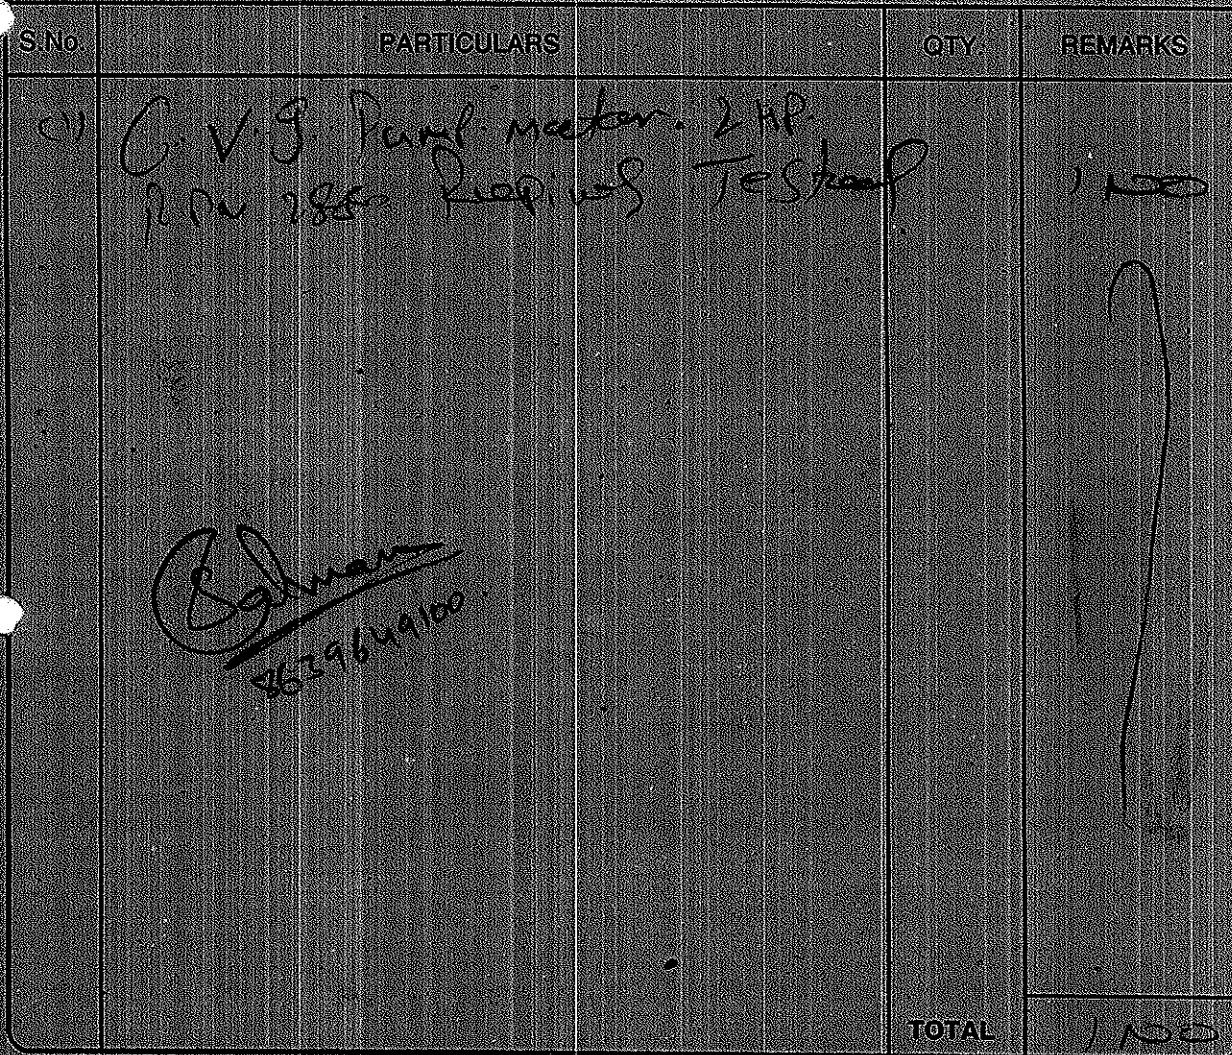 S.No. PARTICULARS QTY. REMARKS
(1) C.V.G Pump. Moeter. 2 HP.
RPM 2880 Reepiring Testeed 1 NOO
Salman
8639649100
TOTAL 1 NOO